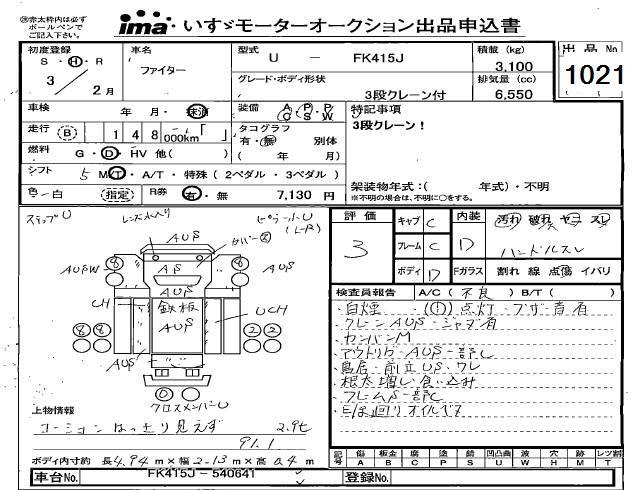 ㊟赤太枠内は必ず
ボールペンで
ご記入下さい。
ima いすゞモーターオークション出品申込書
初度登録 車名 型式 U － FK415J 積載 (kg) 3,100 出品 No
S・H・R ファイター
3 / 2月
グレード・ボディ形状 3段クレーン付 排気量 (cc) 6,550 1021
車検 年 月・抹消 装備 A P・P C S W 特記事項
3段クレーン！
走行 B 1 4 8 000km「 」 タコグラフ
有・無 別体
( 年 月)
燃料 G・D・HV 他( )
シフト 5 M/T・A/T・特殊 (2ペダル・3ペダル)
架装物年式:( 年式)・不明
※不明の場合は、不明に○をする。
色 白 (指定) R券 有・無 7,130 円
ステップU
評価 3 キャブ C 内装 D 汚れ 破れ ヤニ スレ
フレーム C ハンドルスレ
ボディ D Fガラス 割れ 線 点傷 イバリ
AUS
カバー
AUSW 8 AS 8
AUS
LH 鉄板 UCH
AUS
8 8 2 2
AUS
0 0
クロスメンバーU
検査員報告 A/C ( 不良 ) B/T ( )
・白煙 ・(H)点灯・ブザー音有
・クレーンAUS・シャダ有
・カンバンM
・アウトリガ・AUS・部C
・鳥居・前立US・ワレ
・根太増し食い込み
・フレームS・部C
上物情報
コーションはっきり見えず 2.9t
91.1
ボディ内寸約 長 4.94 m × 幅 2.13 m × 高 0.4 m
記号 傷 板金 腐 塗 錆 凹凸曲 波 穴 跡 レツ割
A B C P S U W H M T
車台No. FK415J－540641 登録No.